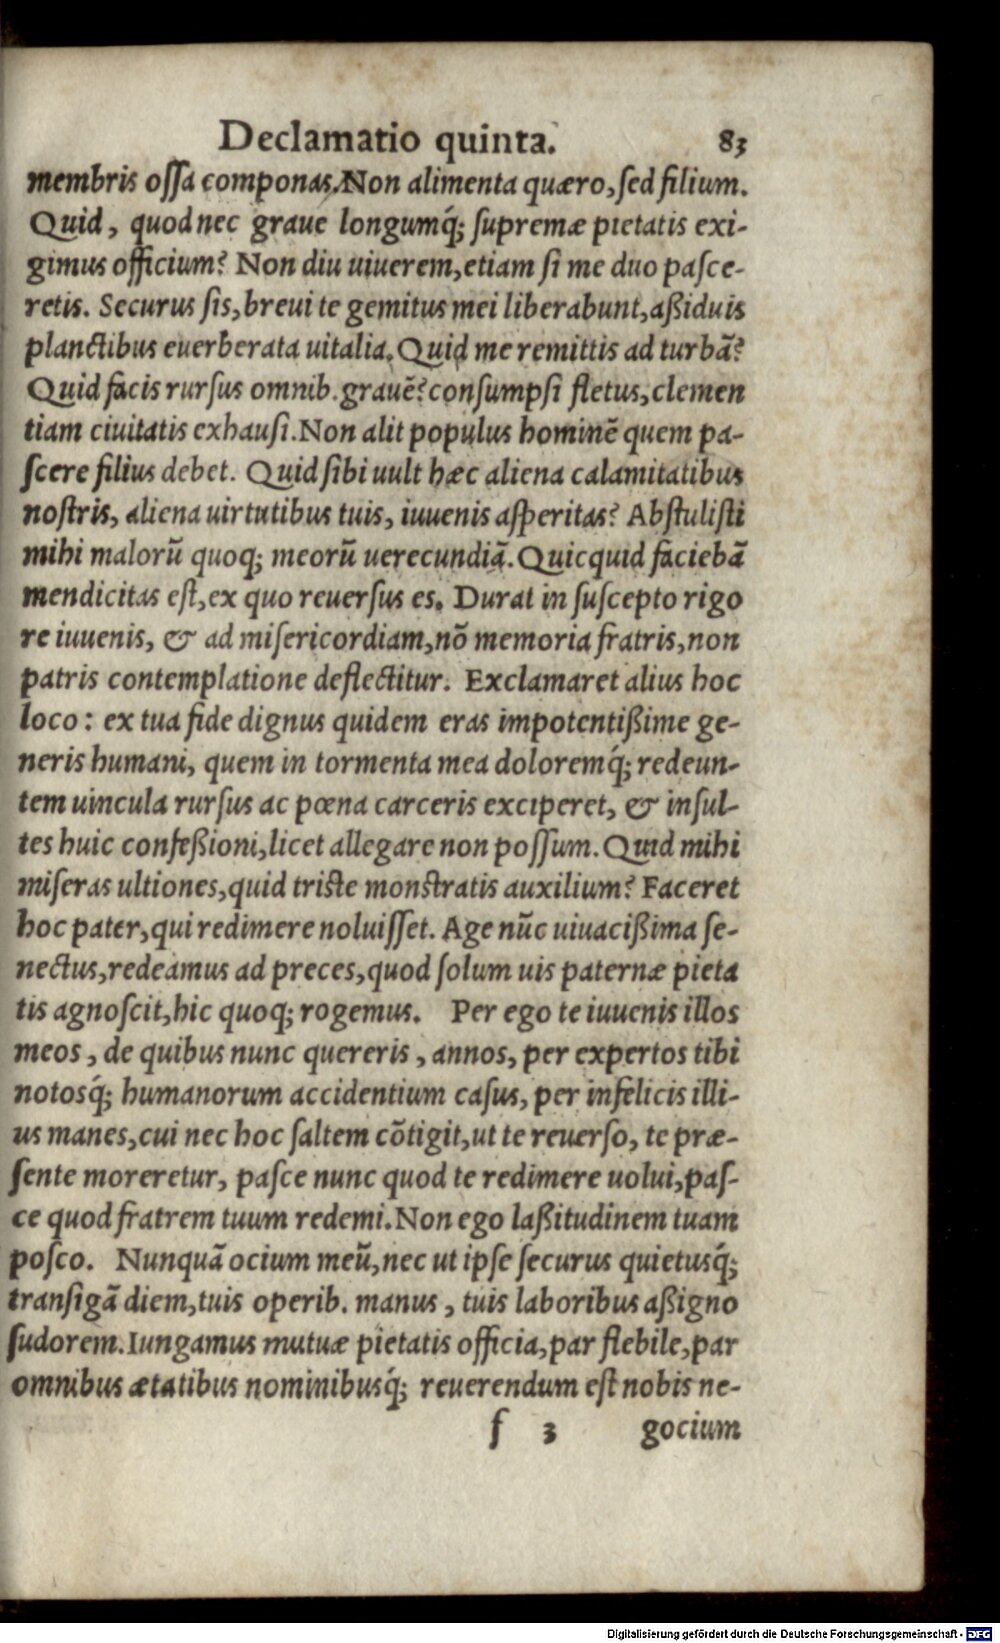 Declamatio quinta. 83
membris ossa componas. Non alimenta quæro, sed filium.
Quid, quod nec graue longumq́; supremæ pietatis exi-
gimus officium? Non diu uiuerem, etiam si me duo pasce-
retis. Securus sis, breui te gemitus mei liberabunt, aßiduis
planctibus euerberata uitalia. Quid me remittis ad turbã?
Quid facis rursus omnib. grauẽ? consumpsi fletus, clemen
tiam ciuitatis exhausi. Non alit populus hominẽ quem pa-
scere filius debet. Quid sibi uult hæc aliena calamitatibus
nostris, aliena uirtutibus tuis, iuuenis asperitas? Abstulisti
mihi malorũ quoq; meorũ uerecundiã. Quicquid faciebã
mendicitas est, ex quo reuersus es. Durat in suscepto rigo
re iuuenis, & ad misericordiam, nõ memoria fratris, non
patris contemplatione deflectitur. Exclamaret alius hoc
loco: ex tua fide dignus quidem eras impotentißime ge-
neris humani, quem in tormenta mea doloremq́; redeun-
tem uincula rursus ac pœna carceris exciperet, & insul-
tes huic confeßioni, licet allegare non possum. Quid mihi
miseras ultiones, quid triste monstratis auxilium? Faceret
hoc pater, qui redimere noluisset. Age nũc uiuacißima se-
nectus, redeamus ad preces, quod solum uis paternæ pieta
tis agnoscit, hic quoq; rogemus. Per ego te iuuenis illos
meos, de quibus nunc quereris, annos, per expertos tibi
notosq́; humanorum accidentium casus, per infelicis illi-
us manes, cui nec hoc saltem cõtigit, ut te reuerso, te præ-
sente moreretur, pasce nunc quod te redimere uolui, pas-
ce quod fratrem tuum redemi. Non ego laßitudinem tuam
posco. Nunquã ocium meũ, nec ut ipse securus quietusq́;
transigã diem, tuis operib. manus, tuis laboribus aßigno
sudorem. Iungamus mutuæ pietatis officia, par flebile, par
omnibus ætatibus nominibusq́; reuerendum est nobis ne-
f 3 gocium
Digitalisierung gefördert durch die Deutsche Forschungsgemeinschaft - DFG